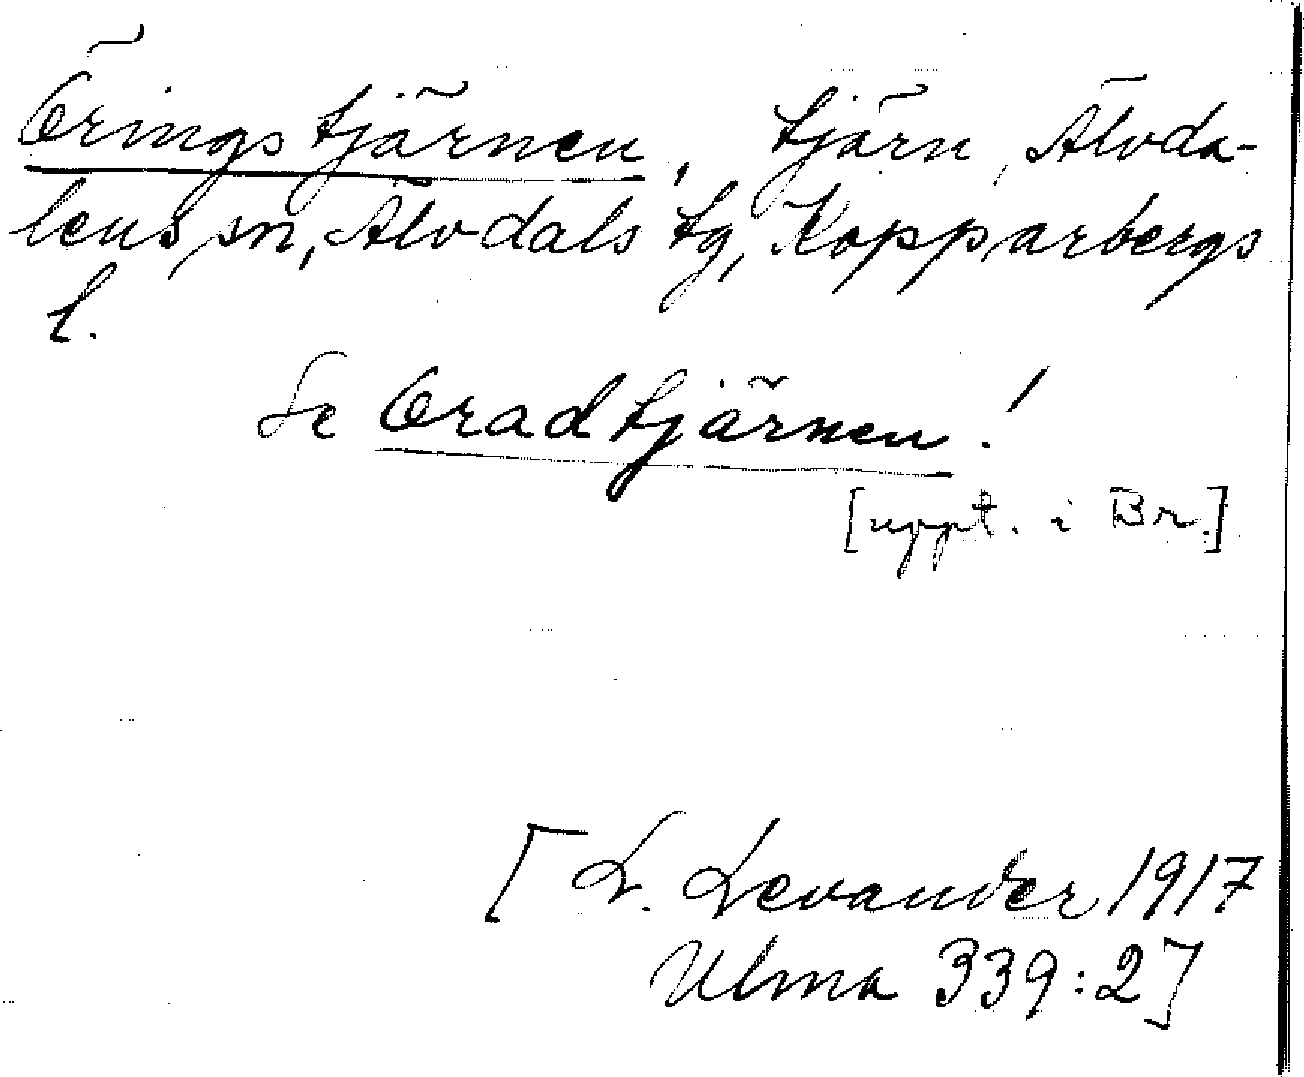 Öringstjärnen, tjärn, Älvda-
lens sn, Älvdals tg, Kopparbergs
l.
Se Oradtjärnen!
[uppt. i Br.]
[L. Levander 1917
Ulma 339:2]